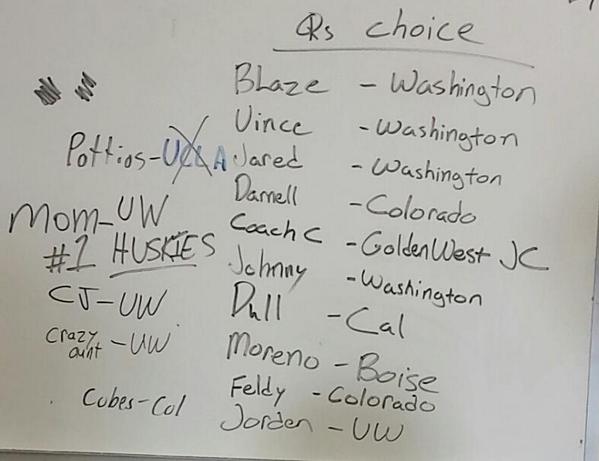 QRs choice
Blaze - Washington
Vince - Washington
Pottios - UCLA
Jared - Washington
Darnell - Colorado
Mom - UW
#1 HUSKIES
Coach C - Golden West JC
Johnny - Washington
CJ - UW
Dull - Cal
Crazy aunt - UW
Moreno - Boise
Feldy - Colorado
Cubes - Col
Jorden - UW